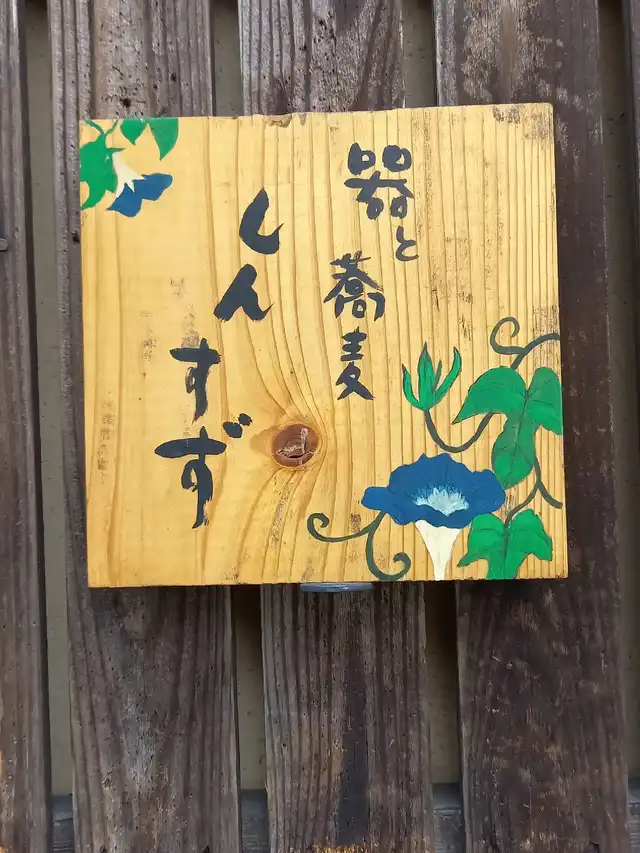 器と
蕎麦
しん
すず